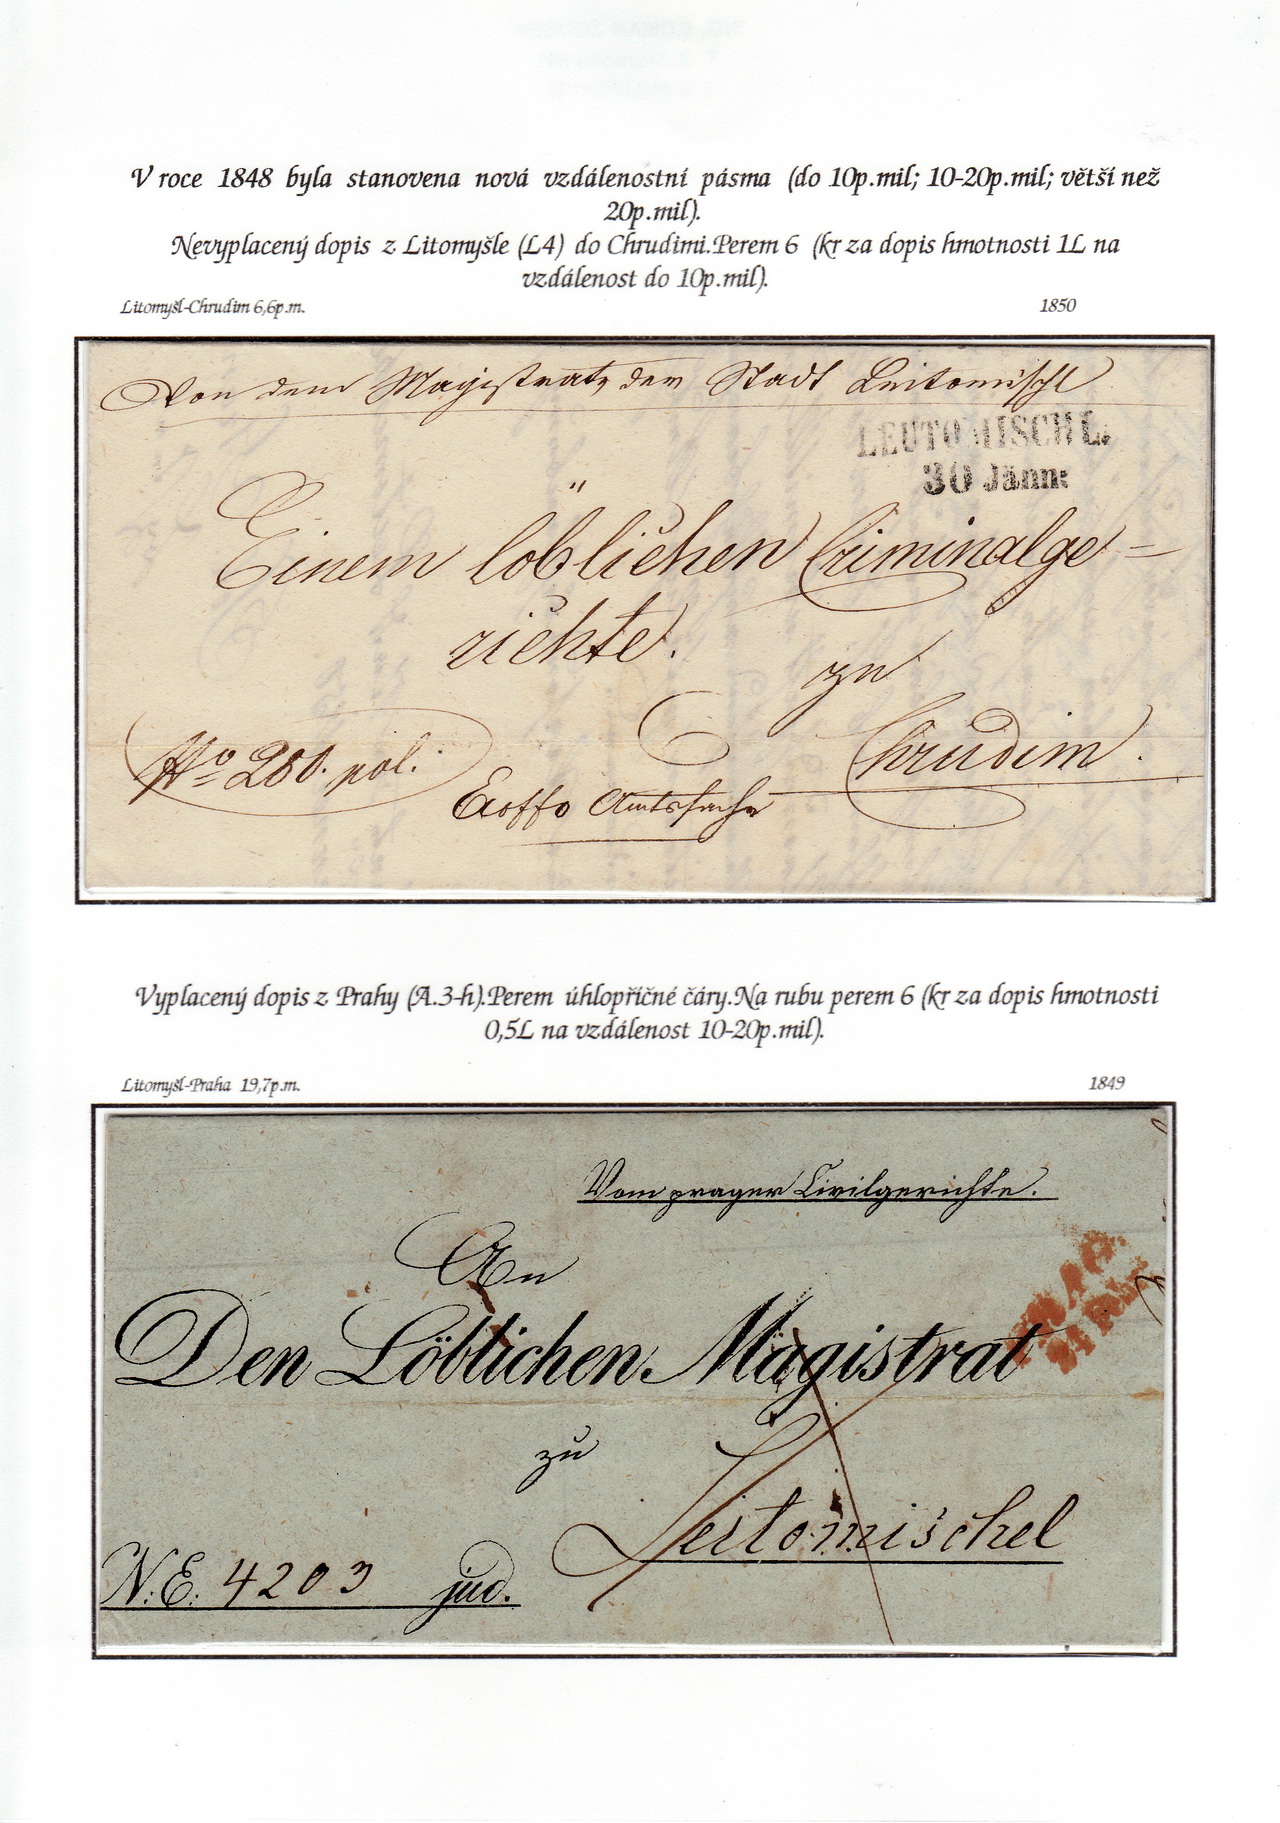 V roce 1848 byla stanovena nová vzdálenostní pásma (do 10p.mil; 10-20p.mil; větší než
20p.mil).
Nevyplacený dopis z Litomyšle (L4) do Chrudimi.Perem 6 (kr za dopis hmotnosti 1L na
vzdálenost do 10p.mil).
Litomyšl-Chrudim 6,6p.m. 1850
Von dem Magistrate der Stadt Leitomischl
LEUTOMISCHL.
30 Jänn:
Einem löblichen Criminalge=
richte.
zu
Chrudim.
No 280. pol.
Exoffo Amtssache
Vyplacený dopis z Prahy (A.3-h).Perem úhlopříčné čáry.Na rubu perem 6 (kr za dopis hmotnosti
0,5L na vzdálenost 10-20p.mil).
Litomyšl-Praha 19,7p.m. 1849
Vom prager Civilgerichte.
PRAG
An
Den Löblichen Magistrat
zu
Leitomischel
N.E. 4203 jud.